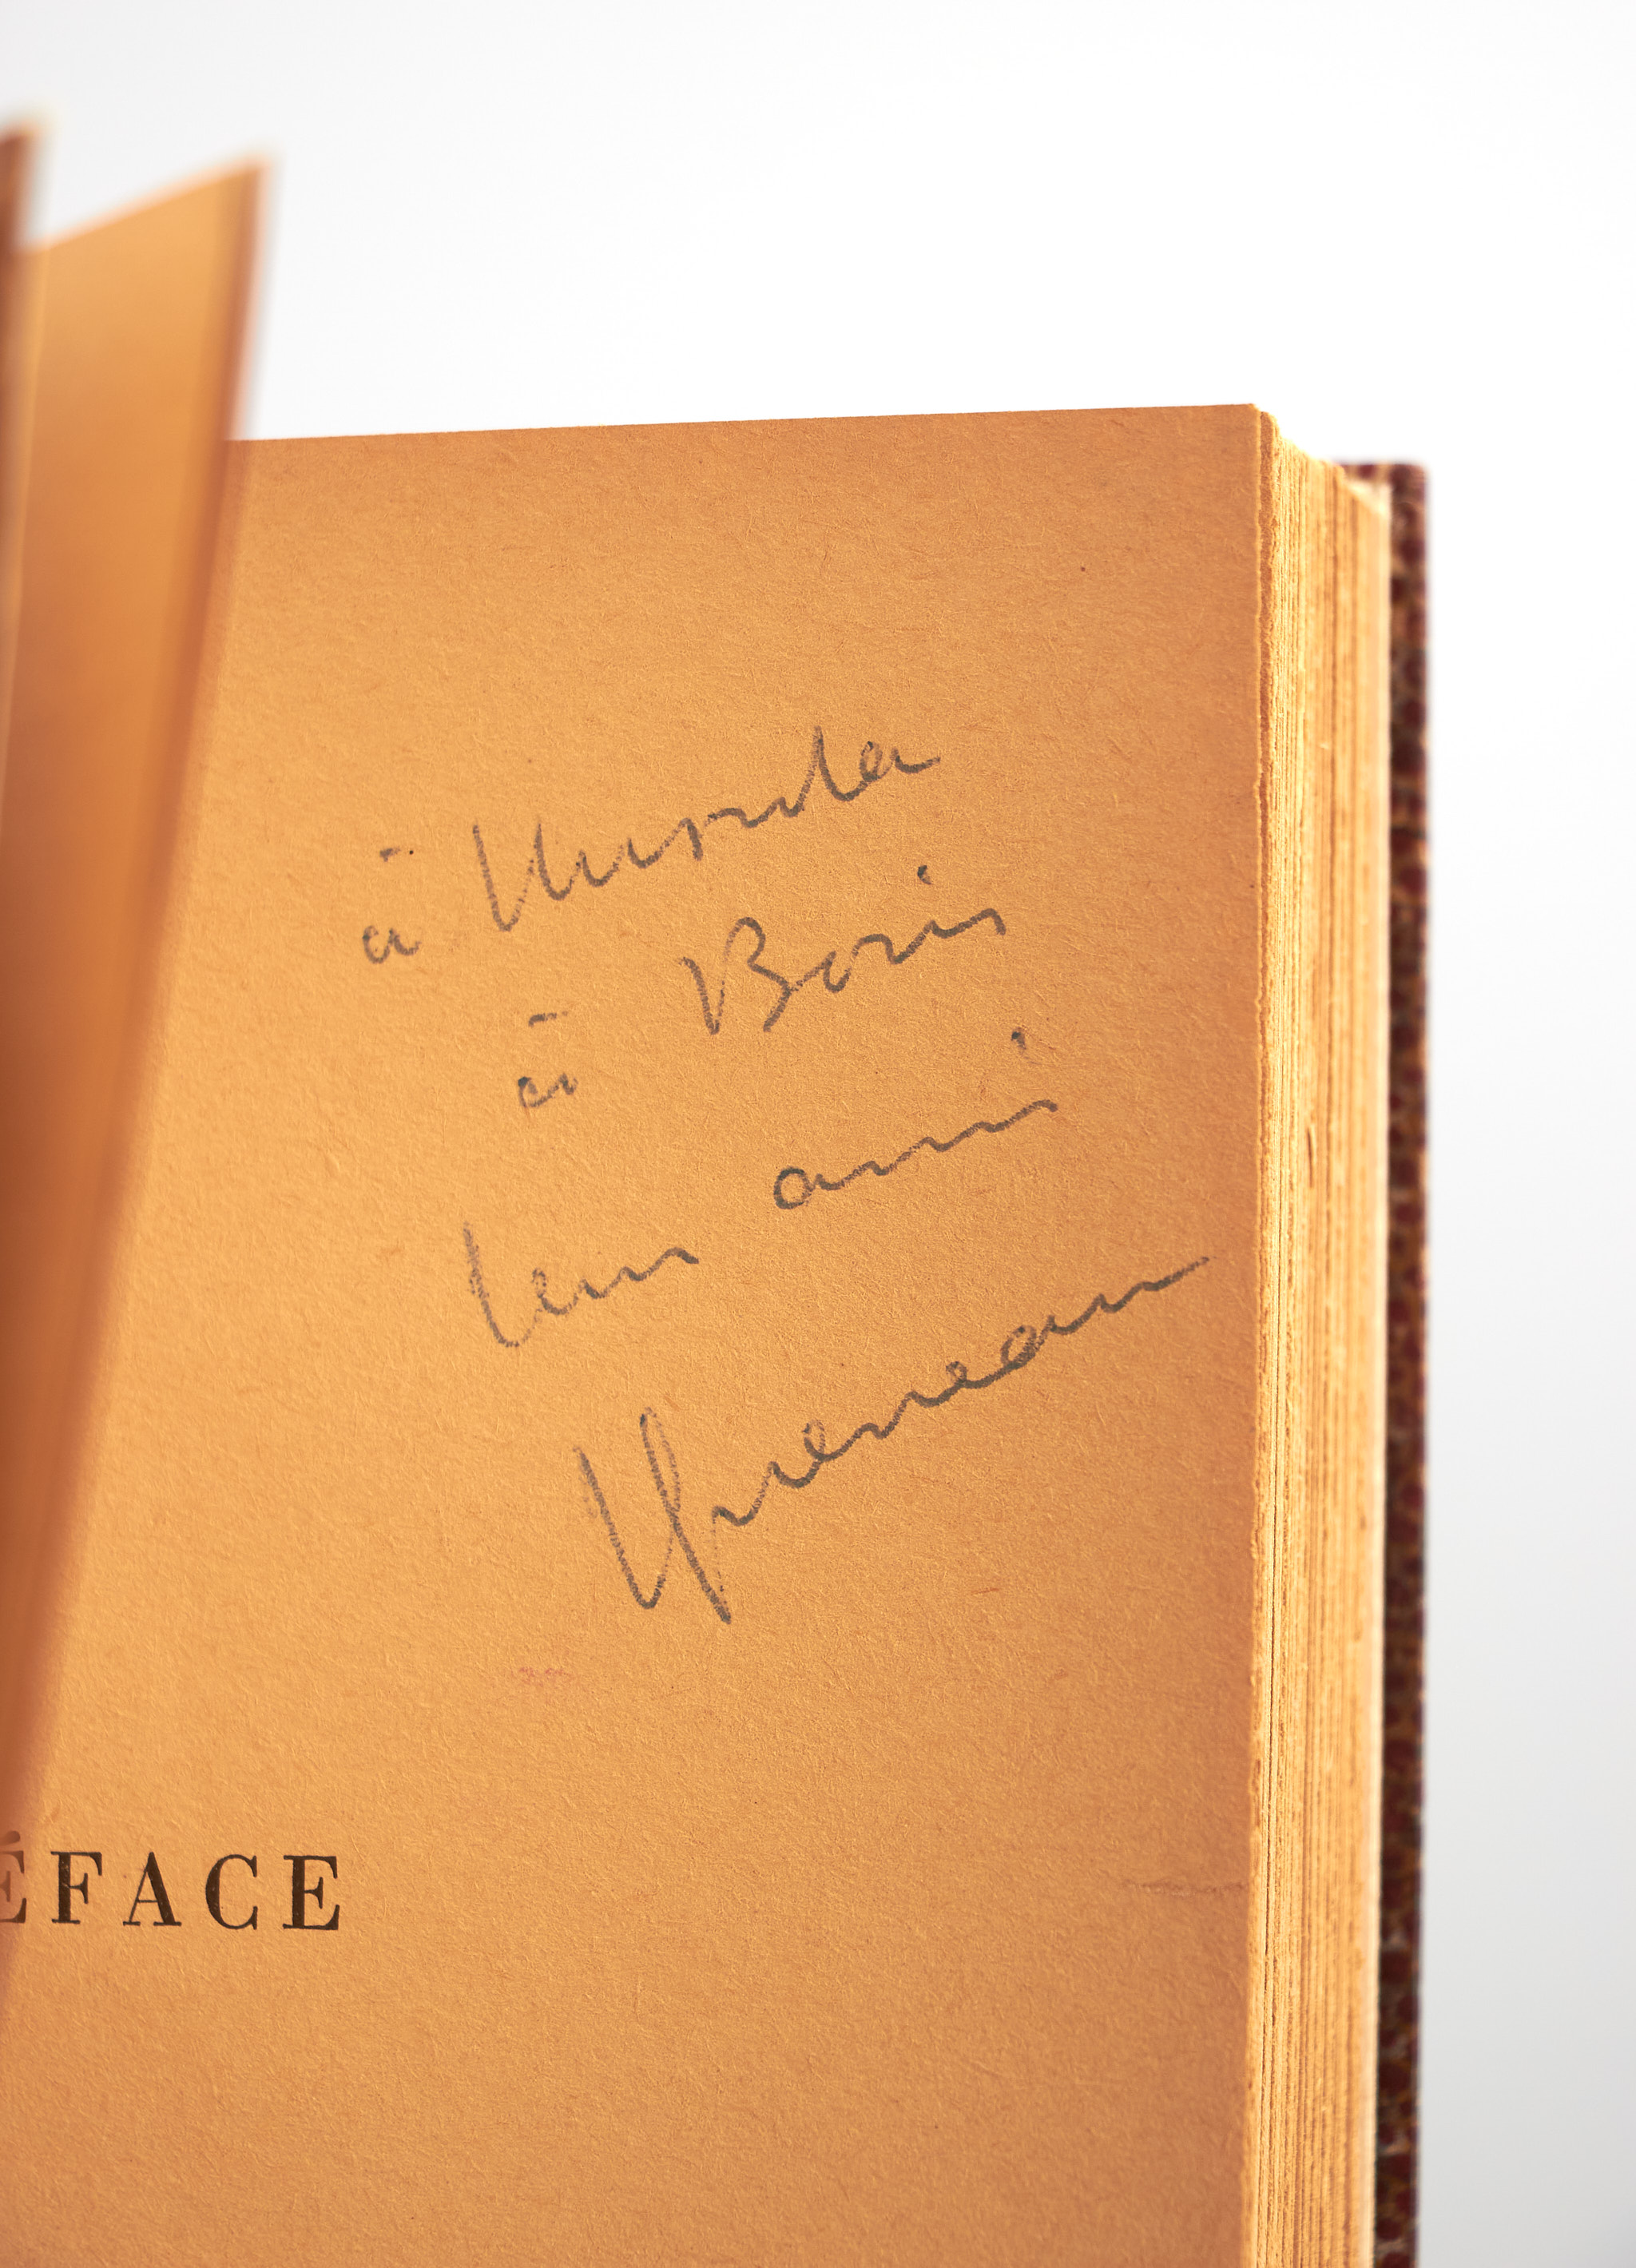 à Ursula
à Boris
leur ami
Queneau
ÉFACE